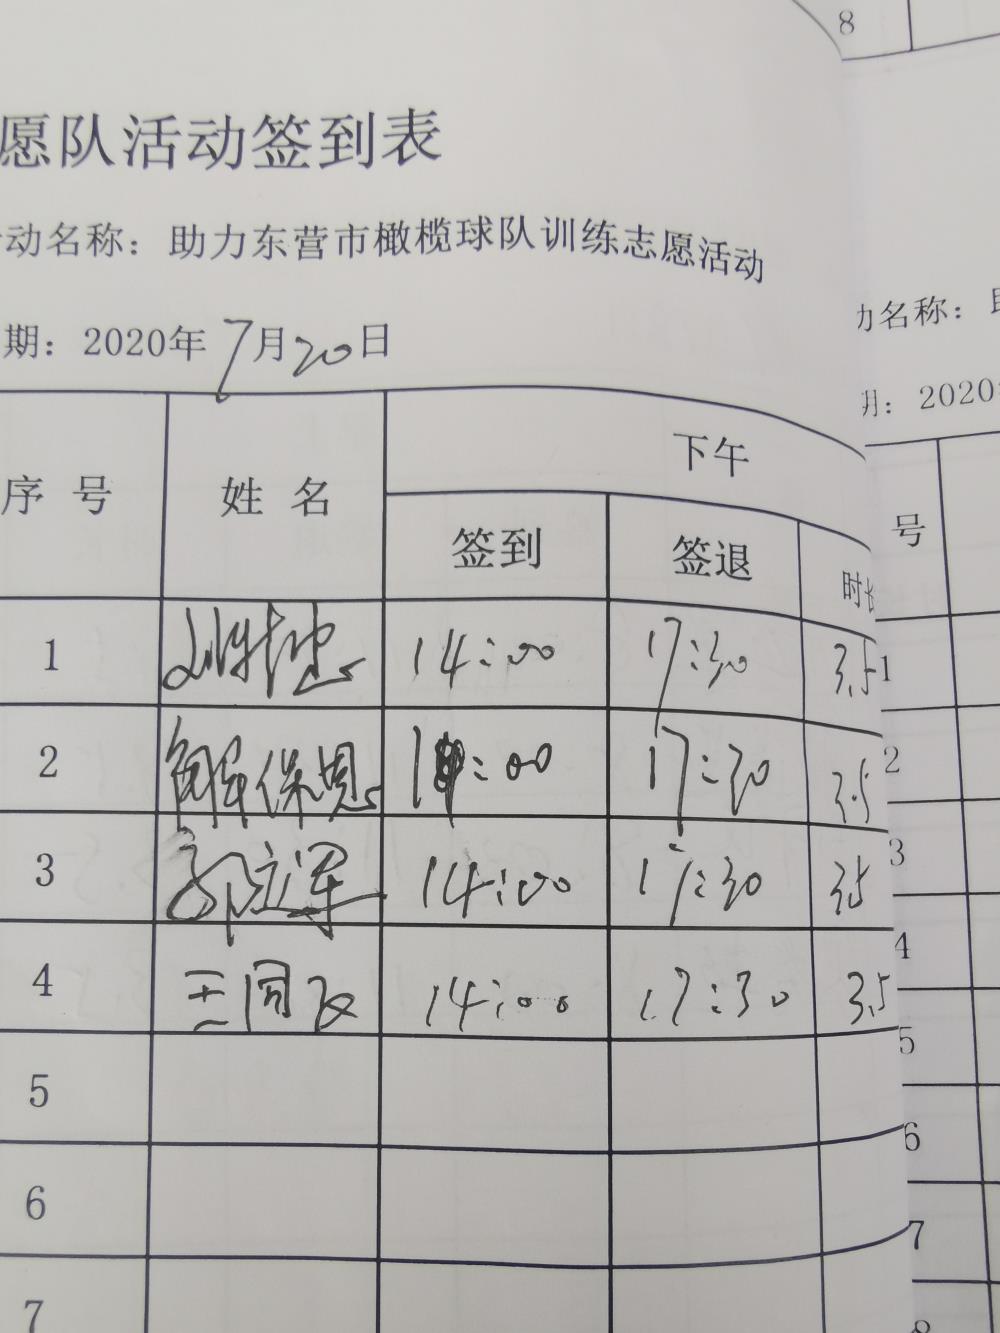 愿队活动签到表
动名称：助力东营市橄榄球队训练志愿活动
期：2020年7月20日
序号 姓名 下午
签到 签退 时长
1 14:00 17:30 3.5
2 解保恩 :00 17:30 3.5
3 郭立军 14:00 17:30 3.5
4 王同 14:00 17:30 3.5
5
6
7
8
力名称：
期：2020
号
1
2
3
4
5
6
7
8